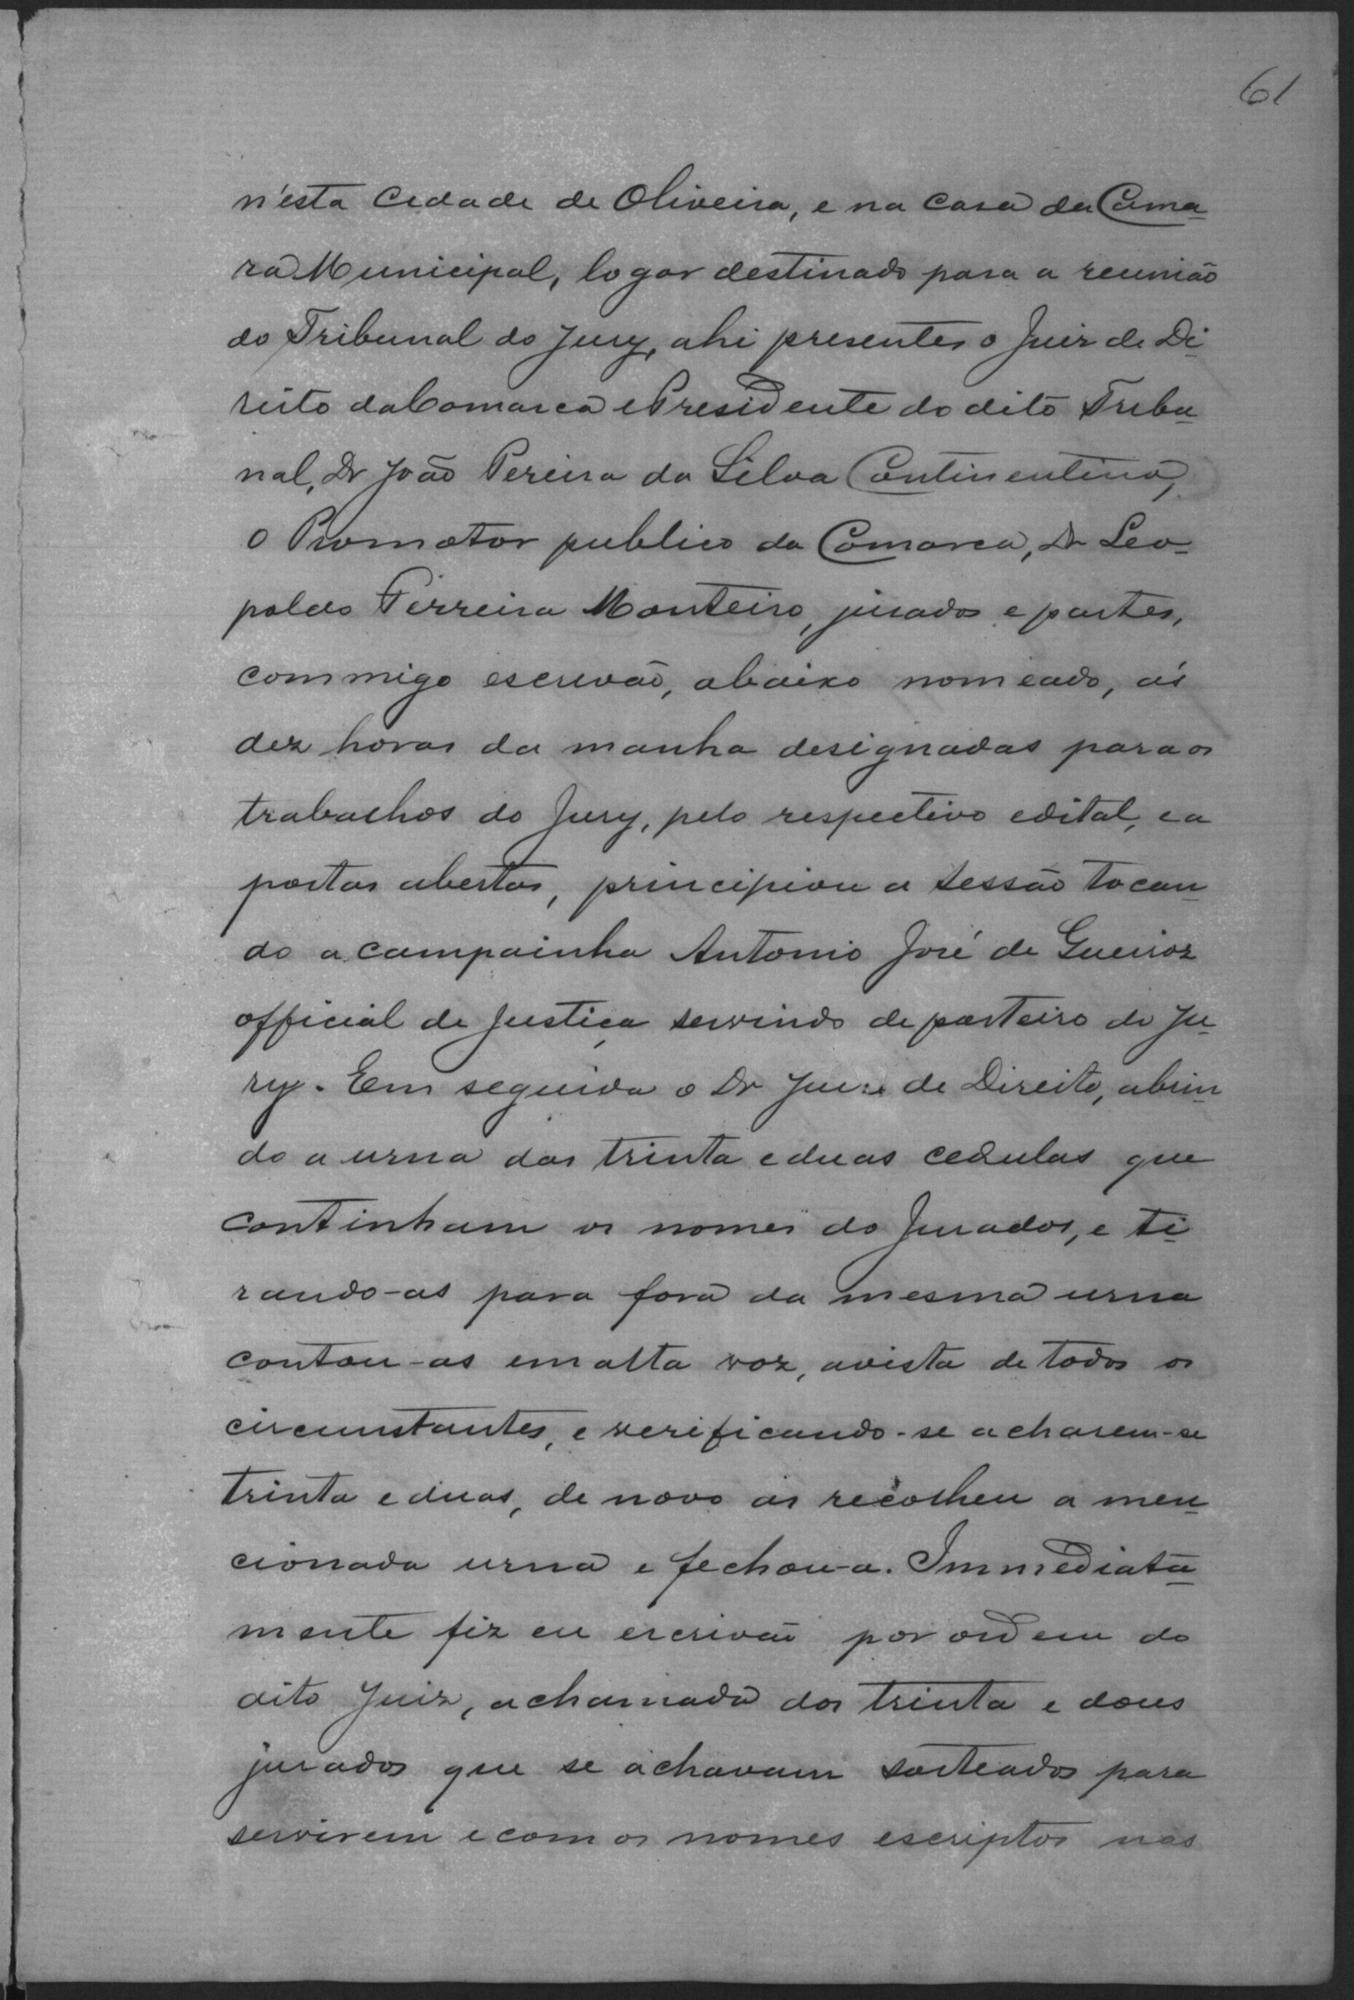 61
n'esta Cidade de Oliveira, e na casa da Cama-
ra Municipal, logar destinado para a reunião
do Tribunal do Jury, ahi presentes o Juiz de Di-
reito da Comarca e Presidente do dito Tribu-
nal, Dr João Pereira da Silva Continentino,
o Promotor publico da Comarca, Dr Leo-
poldo Ferreira Monteiro, jurados e partes,
commigo escrivão, abaixo nomeado, ás
dez horas da manha designadas para os
trabalhos do Jury, pelo respectivo edital, e a
portas abertas, principiou a sessão tocan-
do a campainha Antonio José de Queiroz
official de justiça servindo de porteiro do Ju-
ry. Em seguida o Dr Juiz de Direito, abrin-
do a urna das trinta e duas cedulas que
continham os nomes do Jurados, e ti-
rando-as para fora da mesma urna
contou-as em alta voz, a vista de todos os
circumstantes, e verificando-se acharem-se
trinta e duas, de novo as recolheu a men-
cionada urna e fechou-a. Immediata-
mente fiz eu escrivão por ordem do
dito Juiz, a chamada dos trinta e dous
jurados que se achavam sorteados para
servirem e com os nomes escriptos nas